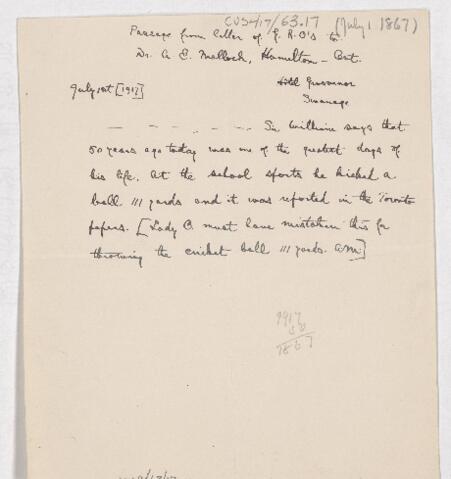 CUS417/63.17 (July 1 1867)
Passage from letter of G. R. O's to
Dr. A. E. Malloch, Hamilton - Ont.
July 1st [1917]
Hotel Grosvenor
Swanage
— — — — — Sir William says that
50 years ago today was one of the greatest days of
his life. At the school sports he kicked a
ball 111 yards and it was reported in the Toronto
papers. [Lady O. must have mistaken this for
throwing the cricket ball 111 yards. AM]
1917
50
1867